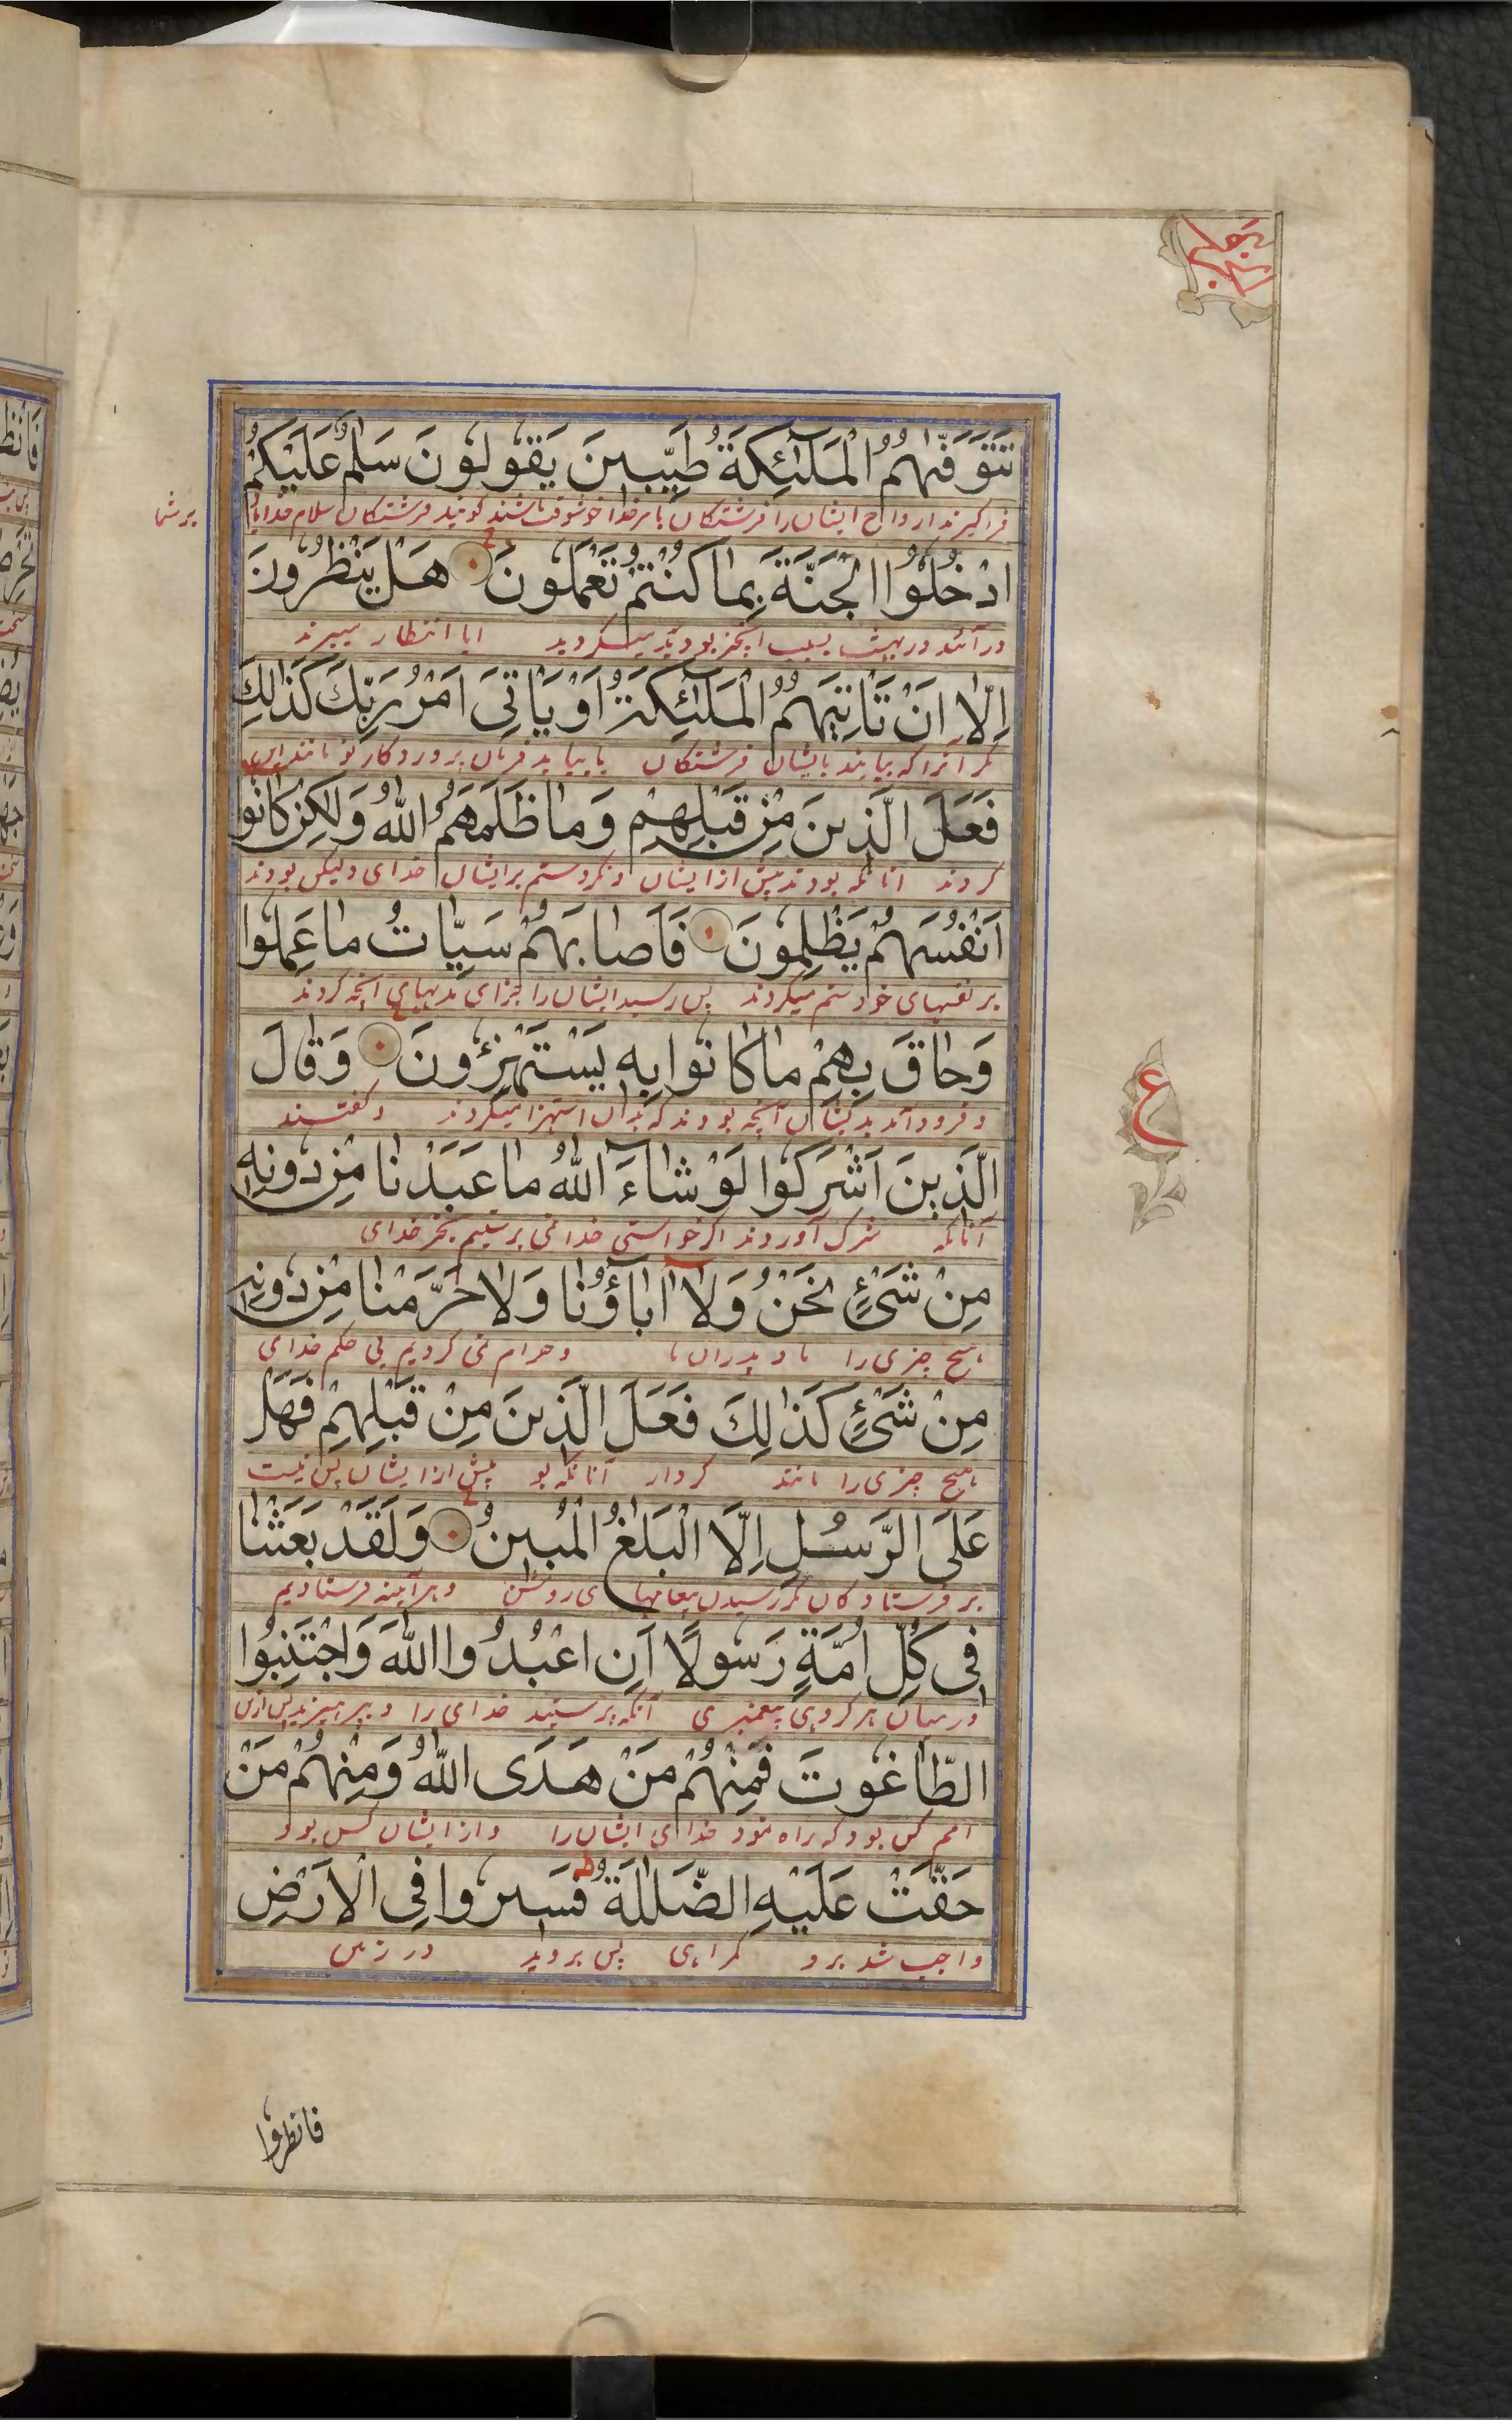 تَتَوَفّٰهُمُ الْمَلٰٓئِكَةُ طَيِّبِينَ يَقُولُونَ سَلٰمٌ عَلَيْكُمُ
فراگیرند ارواح ایشان را فرشتگان با مر خدا خوشوقت باشند گویند فرشتگان سلام خدایا
بر شما
ادْخُلُوا الْجَنَّةَ بِمَا كُنْتُمْ تَعْمَلُونَ هَلْ يَنْظُرُونَ
در آئند در بهشت بسبب آنچیز بودید میکردید ایا انتظار میبرند
اِلَّا اَنْ تَاْتِيَهُمُ الْمَلٰٓئِكَةُ اَوْ يَاْتِىَ اَمْرُ رَبِّكَ كَذٰلِكَ
مگر آنرا که بیایند بایشان فرشتگان یا بیاید فرمان پروردگار تو مانند این
فَعَلَ الَّذِينَ مِنْ قَبْلِهِمْ وَمَا ظَلَمَهُمُ اللّٰهُ وَلٰكِنْ كَانُوا
کردند انانکه بودند پیش از ایشان و نکرد ستم بر ایشان خدای ولیکن بودند
اَنْفُسَهُمْ يَظْلِمُونَ فَاَصَابَهُمْ سَيِّاٰتُ مَا عَمِلُوا
بر نفسهای خود ستم میکردند پس رسید ایشان را جزای بدیهای آنچه کردند
وَحَاقَ بِهِمْ مَا كَانُوا بِهِ يَسْتَهْزِءُونَ وَقَالَ
و فرود آمد بدیشان آنچه بودند که بدان استهزا میکردند و گفتند
الَّذِينَ اَشْرَكُوا لَوْ شَآءَ اللّٰهُ مَا عَبَدْنَا مِنْ دُونِهِ
آنانکه شرک آوردند اگر خواستی خدا نمی پرستیم بجز خدای
مِنْ شَىْءٍ نَحْنُ وَلَآ اٰبَاؤُنَا وَلَا حَرَّمْنَا مِنْ دُونِهِ
هیچ چیزی را ما و پدران ما و حرام نمی کردیم بی حکم خدای
مِنْ شَىْءٍ كَذٰلِكَ فَعَلَ الَّذِينَ مِنْ قَبْلِهِمْ فَهَلْ
هیچ چیزی را مانند کردار آنانکه بو پیش از ایشان پس نیست
عَلَى الرُّسُلِ اِلَّا الْبَلٰغُ الْمُبِينُ وَلَقَدْ بَعَثْنَا
بر فرستادگان مگر رسیدن پیغامها ی روشن و هر آینه فرستادیم
فِى كُلِّ اُمَّةٍ رَسُولًا اَنِ اعْبُدُوا اللّٰهَ وَاجْتَنِبُوا
در میان هر گروهی پیغمبری آنکه پرستید خدای را و بپرهیزید پس ازین
الطَّاغُوتَ فَمِنْهُمْ مَنْ هَدَى اللّٰهُ وَمِنْهُمْ مَنْ
امم کس بود که راه نمود خدای ایشان را و از ایشان کس بود
حَقَّتْ عَلَيْهِ الضَّلٰلَةُ فَسِيرُوا فِى الْاَرْضِ
واجب شد برو گمراهی پس بروید در زمین
ع
فانظروا